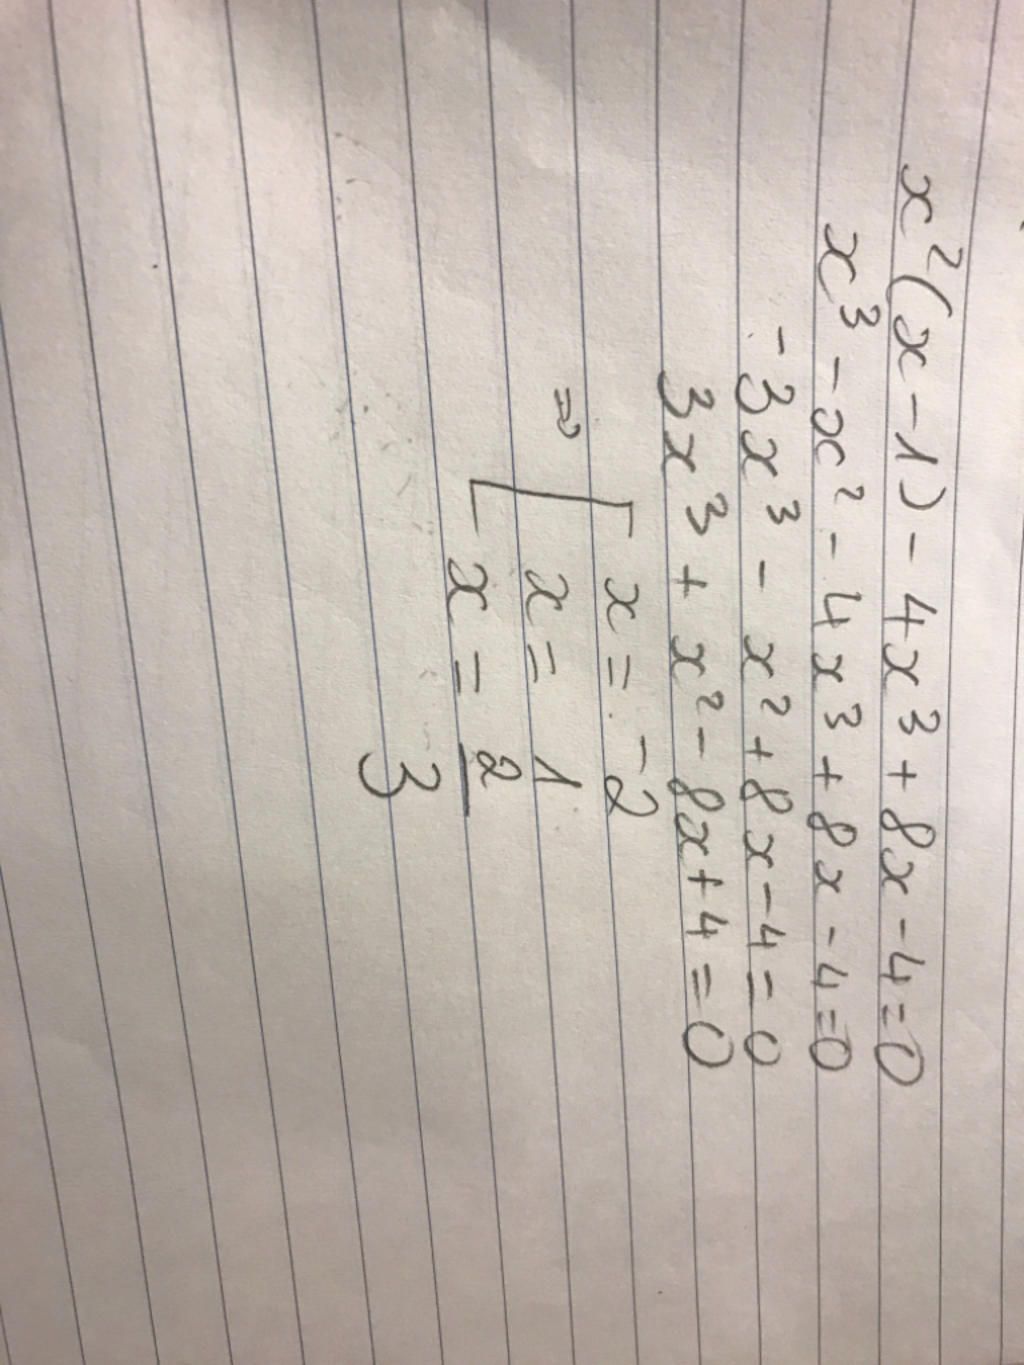 x²(x-1) - 4x³ + 8x - 4 = 0
x³ - x² - 4x³ + 8x - 4 = 0
-3x³ - x² + 8x - 4 = 0
3x³ + x² - 8x + 4 = 0
⇒ [ x = -2
x = 1
x = 2/3